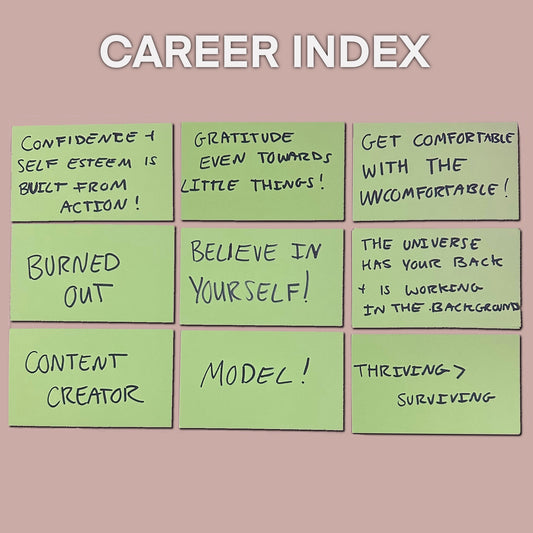 CAREER INDEX
CONFIDENCE +
SELF ESTEEM IS
BUILT FROM
ACTION!
GRATITUDE
EVEN TOWARDS
LITTLE THINGS!
GET COMFORTABLE
WITH THE
UNCOMFORTABLE!
BURNED
OUT
BELIEVE IN
YOURSELF!
THE UNIVERSE
HAS YOUR BACK
+ IS WORKING
IN THE BACKGROUND
CONTENT
CREATOR
MODEL!
THRIVING >
SURVIVING